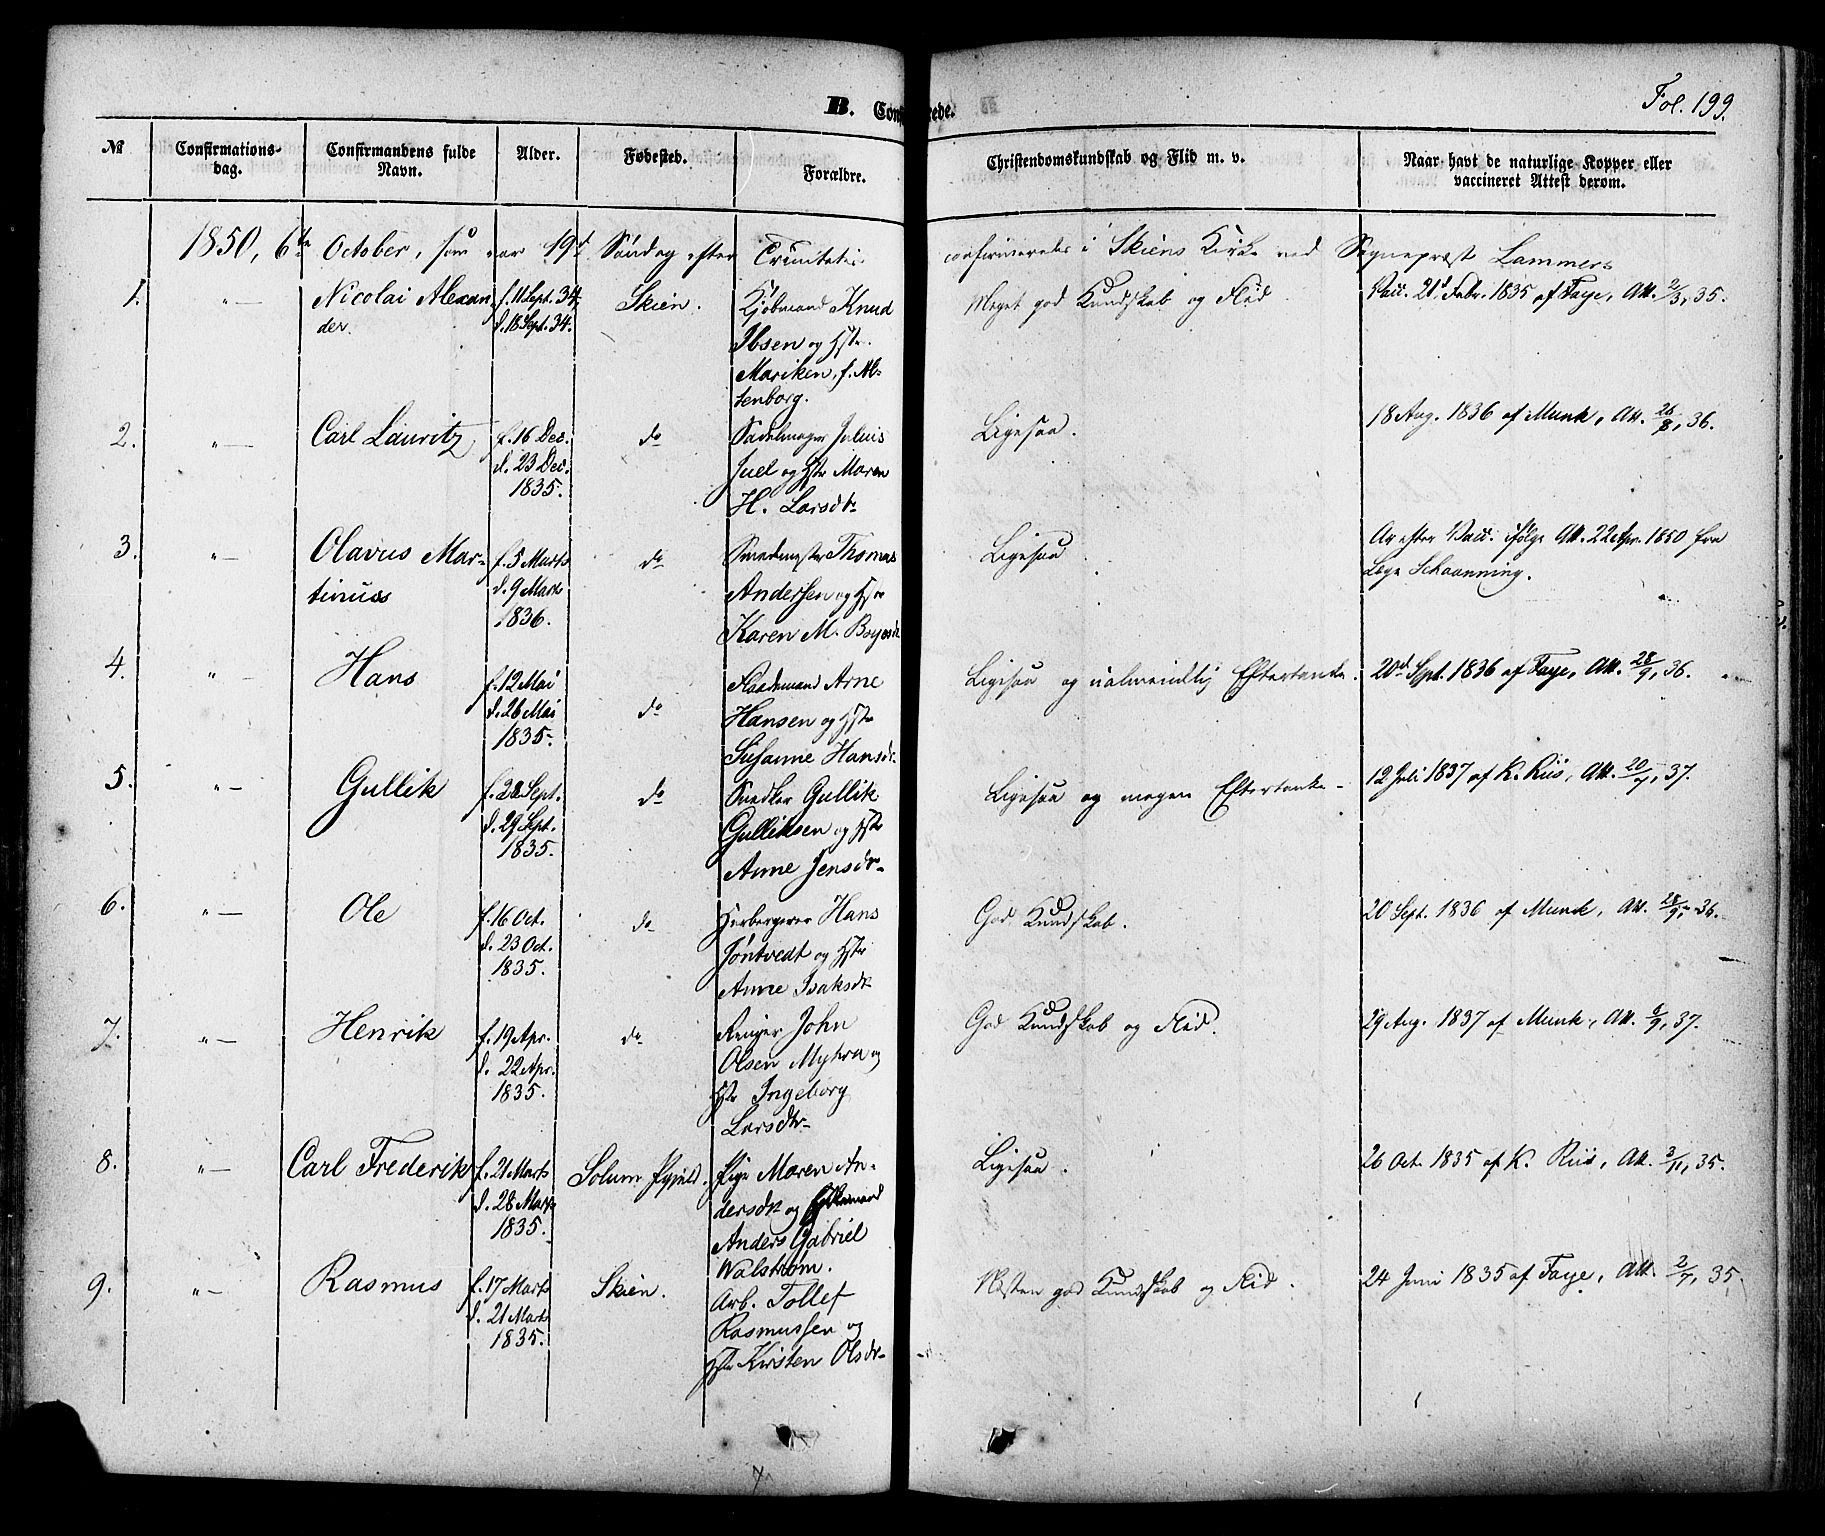 Fol. 199.
B. Conf rede.
№
Confirmations-
dag.
Confirmandens fulde
Navn.
Alder.
Fødested.
Forældre.
Christendomskundskab og Flid m. v.
Naar havt de naturlige Kopper eller
vaccineret Attest derom.
1850, 6te October, som var 19d Søndag efter Trinitatis confirmeredes i Skiens Kirke ved Sognepræst Lammers
1. „— Nicolai Alexan f. 11 Sept. 34, Skien. Kjøbmand Knud Meget god Kundskab og Flid. Vacc. 21d Febr. 1835 af Faye, Att. 2/3, 35.
der. d. 18 Sept. 34.
Ibsen og Hstr.
Mariken, f. Al-
tenborg.
2. „— Carl Lauritz f. 16 Dec. do Sadelmager Julius Ligesaa. 18 Aug. 1836 af Munk, Att. 26/8, 36.
d. 23 Dec. Juel og Hstr Maren
1835. H. Larsdtr
3. „— Olavus Mar- f. 5 Marts do Smedmester Thomas Ligesaa Ar efter Vacc. ifølge Att. 22 Apr. 1850 fra
tinus d. 9 Marts Andersen og Hstr Læge Schaanning.
1836. Karen M.
4. „— Hans f. 12 Mai do Arne Ligesaa og ualmindelig Eftertanke. 20d Sept. 1836 af Faye, Att. 28/9, 36.
d. 26 Mai Hansen og Hstr
1835. Susanne Hansdr.
5. „— Gullik f. 28 Sept. do Snedker Gullik Ligesaa og megen Eftertanke- 12 Juli 1837 af K. Riis, Att. 20/7, 37.
d. 29 Sept. Gulliksen og Hstr
1835. Anne Jensdr-
6. „— Ole f. 16 Oct. do Herbergerer Hans God Kundskab. 20 Sept. 1836 af Munk, Att. 28/9, 36.
d. 23 Oct. Jøntvedt og Hstr
1835. Anne Isaksdtr
7. „— Henrik f. 19 Apr. do John God Kundskab og Flid. 29 Aug. 1837 af Munk, Att. 6/9, 37.
d. 22 Apr. Olsen Myhra og
1835. Hstr Ingeborg
Larsdtr-
8. „— Carl Frederik f. 21 Marts Solum Pige Maren An- Ligesaa. 26 Oct. 1835 af K. Riis, Att. 3/11, 35.
d. 28 Marts dersdtr og
1835. Anders Gabriel
Walstrøm.
9. „— Rasmus f. 17 Marts Skien. Arb. Tollef Næsten god Kundskab og Flid. 24 Juni 1835 af Faye, Att. 2/7, 35.
d. 21 Marts Rasmussen og
1835. Hstr Kirsten Olsdr-